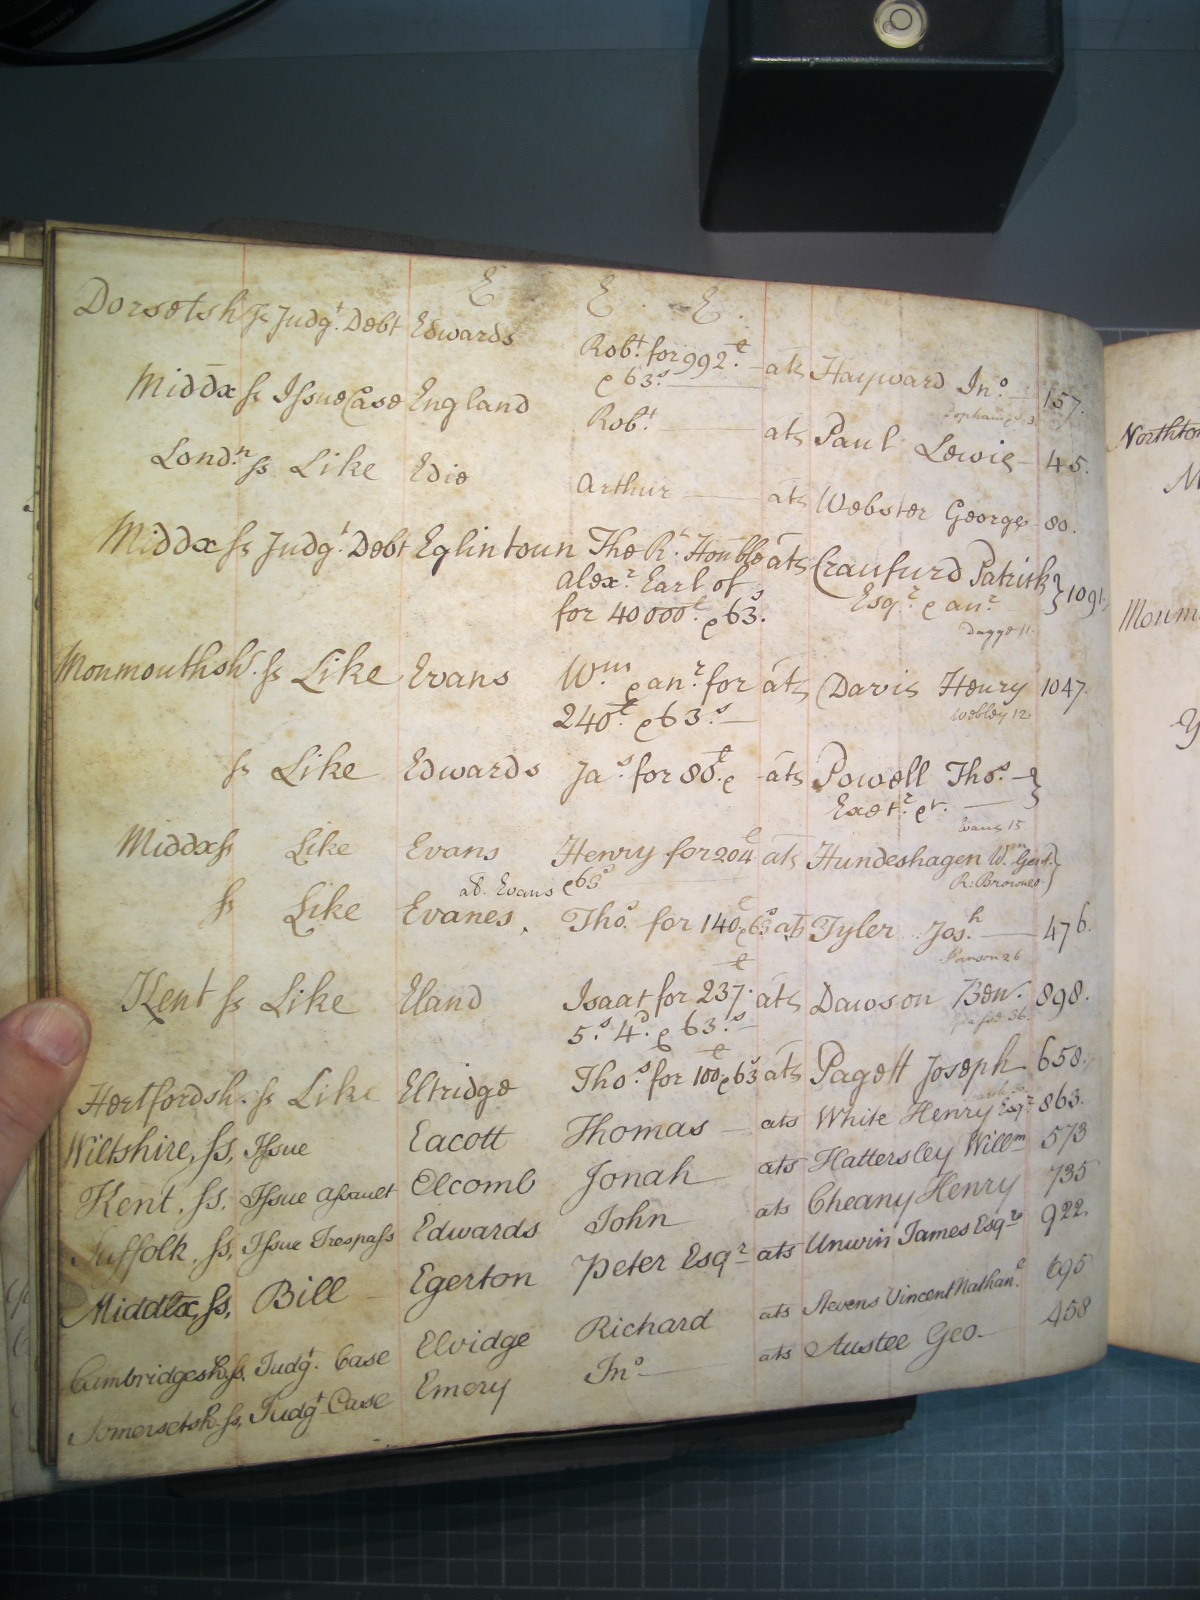 E E. E.
Dorsetsh ss Judgt. Debt Edwards Robt. for 992£. ats Hayward Jno. 157.
& 63s.
Middx ss Issue Case England Robt. ats Paul Lewis 45.
Londn. ss Like Edie Arthur ats Webster George 80.
Middx ss Judgt. Debt Eglintoun The Rt. Honble ats Craufurd Patrick } 1091.
Alexr. Earl of Esqr. & anr.
for 40000£. & 63s. Dagge 11
Monmouthsh. ss Like Evans Wm. & anr. for ats Davis Henry 1047.
240£. & 63.s Webley 12
ss Like Edwards Jas. for 80£. & ats Powell Thos. }
Exetr. &c.
Evans 15
Middx ss Like Evans Henry for 204£ ats Hundeshagen Wm. Gent. }
& 63s R. Browne
ad. Evans
ss Like Evanes, Thos. for 140£. & 63s ats Tyler Josh. 476.
Parson 26
Kent ss Like Eland Isaac for 237£. ats Dawson Ben. 898.
5.s 4.d & 63.s 36.
Hertfordsh. ss Like Eltridge Thos. for 100£. & 63s ats Pagett Joseph 658.
Wiltshire, ss, Issue Eacott Thomas ats White Henry Esqr 863.
Kent, ss, Issue Assault Elcomb Jonah ats Hattersley Willm 573
Suffolk, ss, Issue Trespass Edwards John ats Cheany Henry 735
Middlx, ss, Bill Egerton Peter Esqr ats Unwin James Esqre 922.
Cambridgesh, ss, Judgt. Case Elvidge Richard ats Stevens Vincent Nathanl. 695
Somersetsh. ss, Judgt Case Emery Jno. ats Austee Geo. 458
Northton
M
Monm
Y